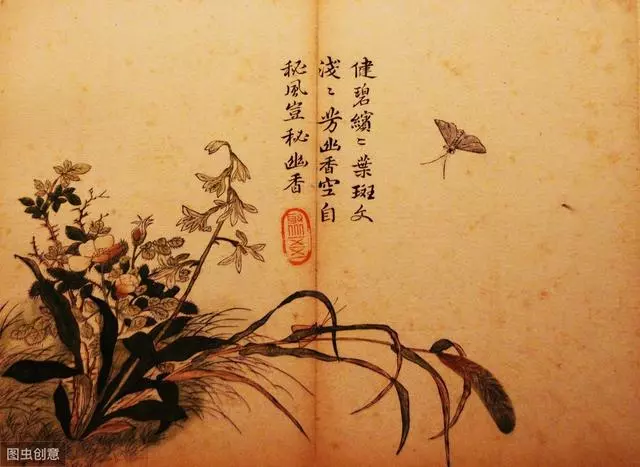 健碧繽〻葉斑文
淺〻芳幽香空自
秘風豈秘幽香
图虫创意